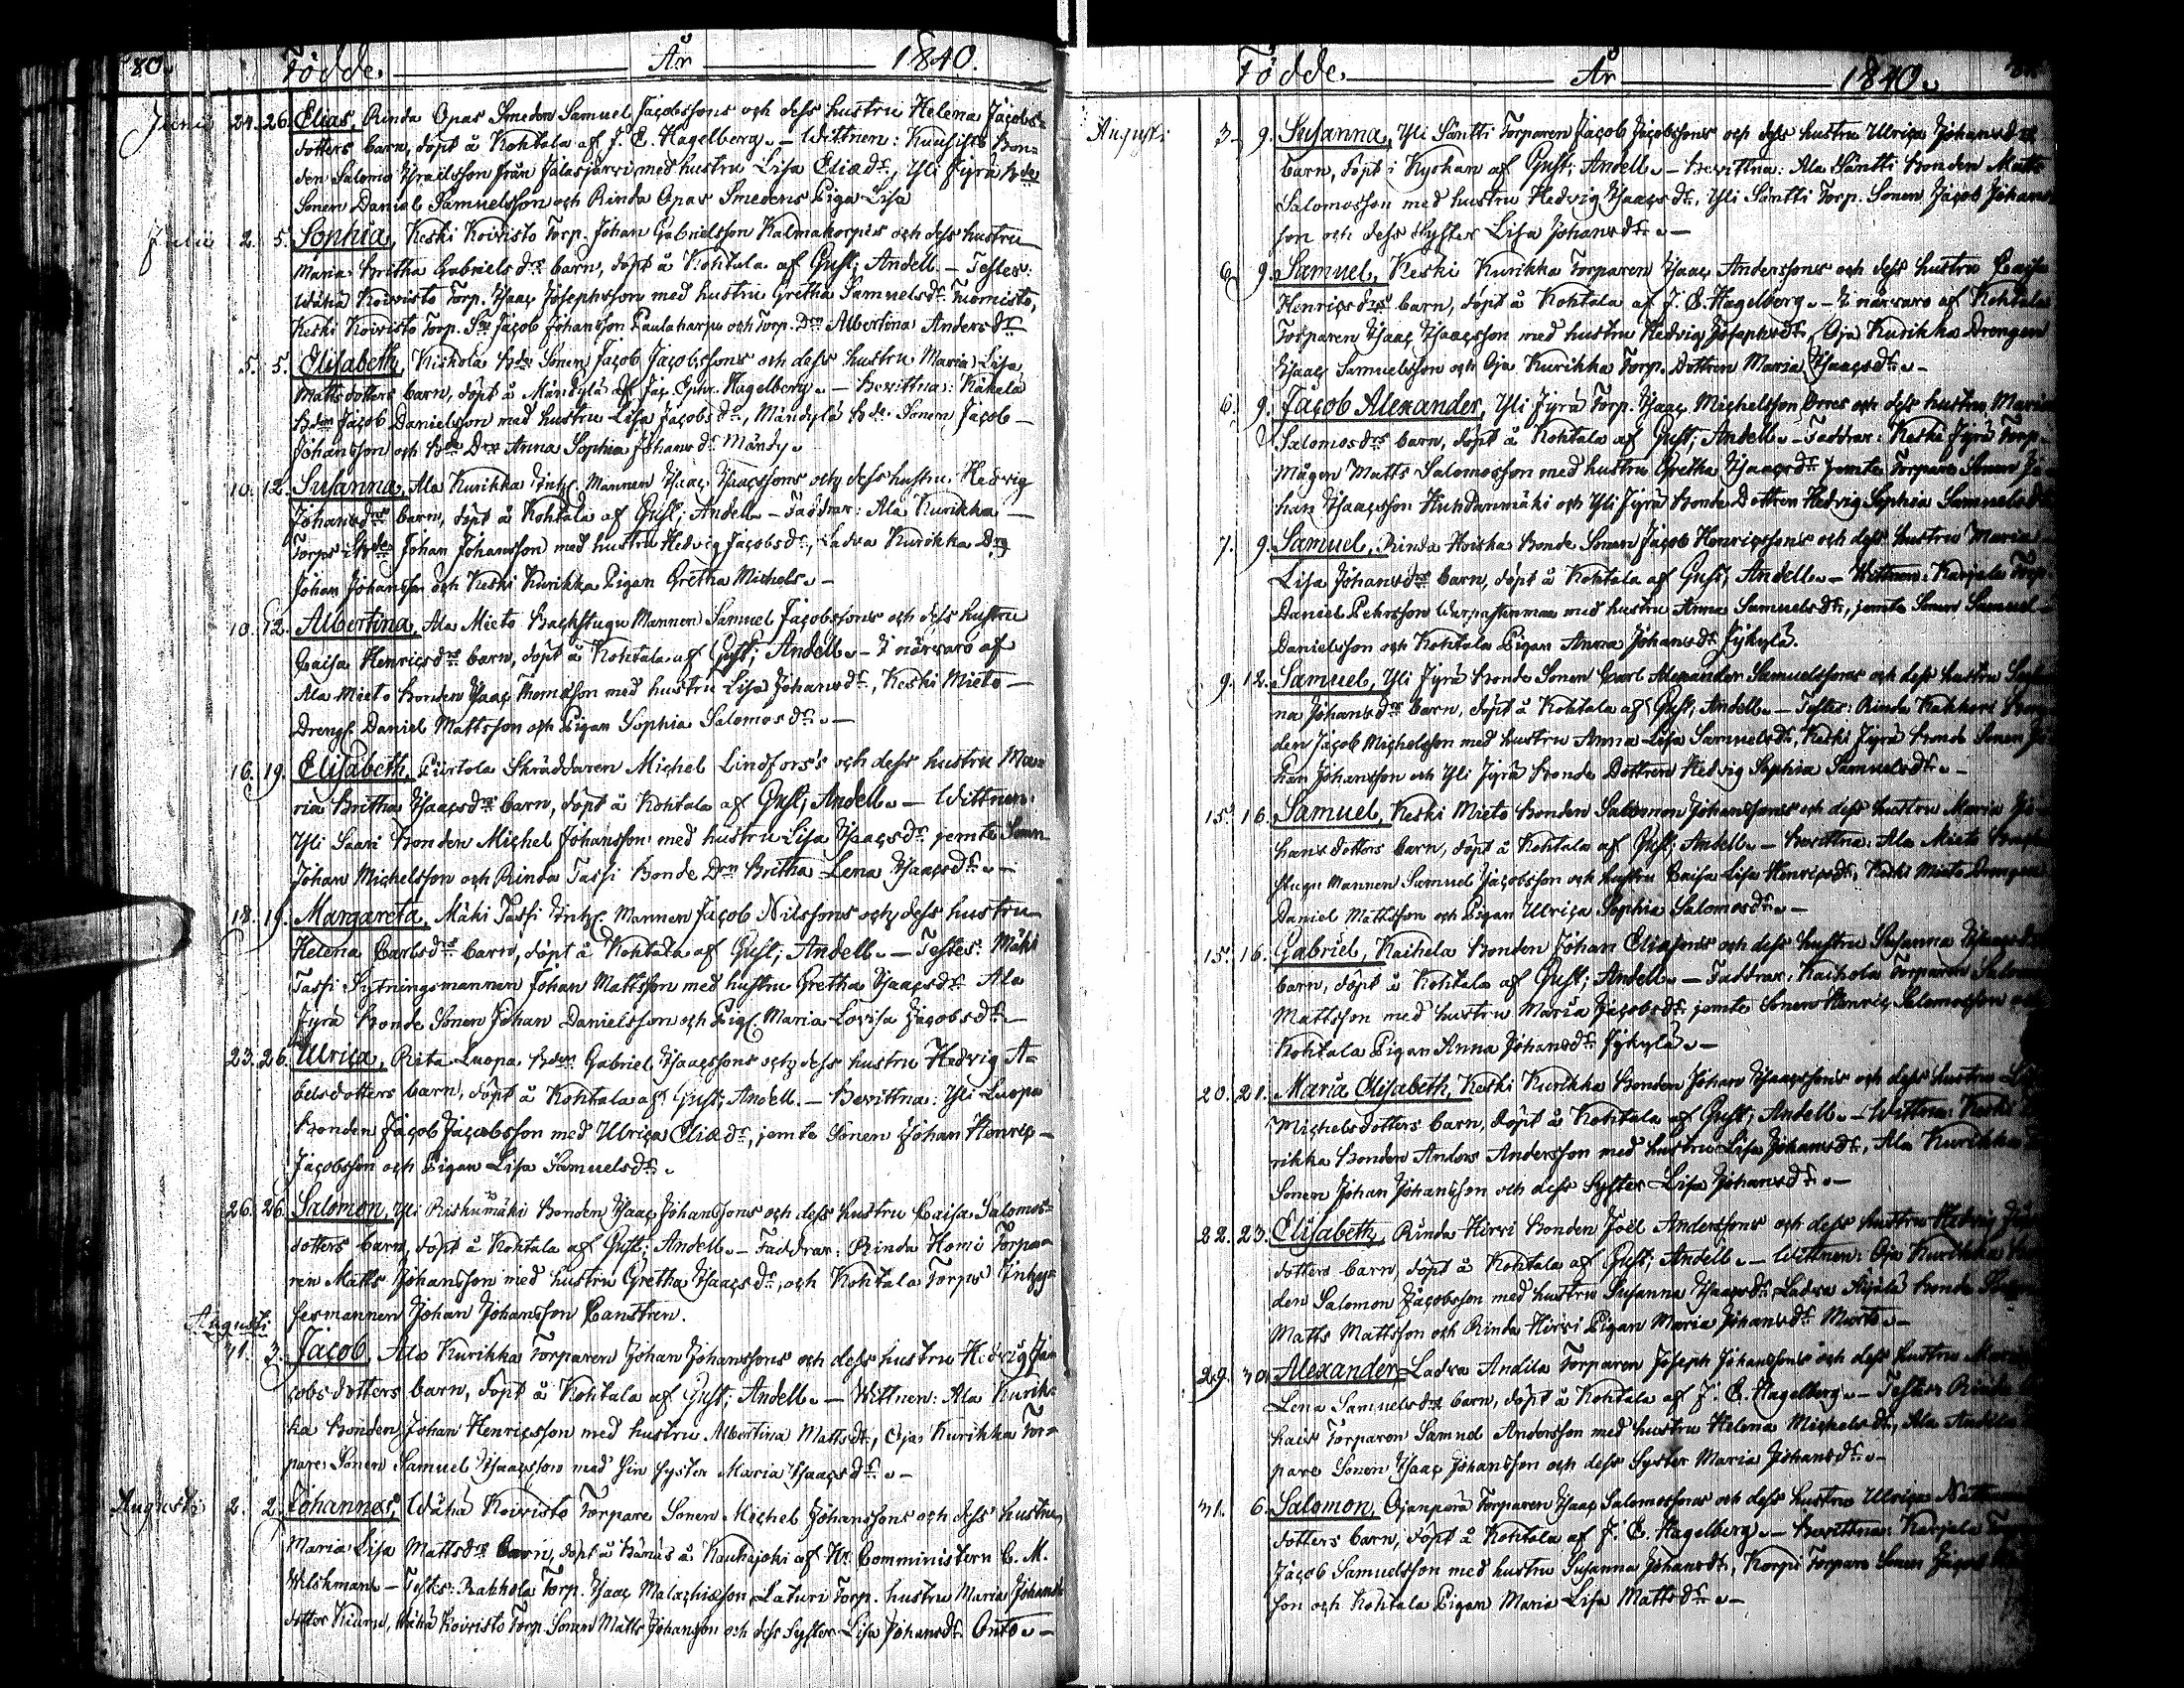 80.
Födde. År 1840.
Junii 24. 26. Elias, Rinda Opas Smeden Samuel Jacobssons och dess hustru Helena Jacobs-
dotters barn, döpt å Kohtala af J. E. Hagelberg. – Wittnen: Bon-
den Salomo Israelsson från Jalasjärvi med hustru Lisa Eliædr, Yli Jyrä Bde
Sonen Daniel Samuelsson och Rinda Opas Smedens Piga Lisa
Julii 2. 5. Sophia, Keski Koivisto Torp. Johan Gabrielsson Kalmakorpis och dess hustru
Maria Britha Gabrielsdrs barn, döpt å Kohtala af Gust; Andell. – Testes:
Wähä Koivisto Torp. Isaac Josephsson med hustru Gretha Samuelsdr Tuomisto,
Keski Koivisto Torp. Sn Jacob Johansson Paulaharju och Torp. Drn Albertina Andersdr
5. 5. Elisabeth, Kiskola Bde Sonen Jacob Jacobssons och dess hustru Maria Lisa
Mattsdotters barn, döpt å Mändylä af Jac. Ephr. Hagelberg. – Bevittna: Käkelä
Bden Jacob Danielsson med hustru Lisa Jacobsdr, Mändylä Bde Sonen Jacob
Johansson och Bde Drn Anna Sophia Johansdr Mändy.
10. 12. Susanna, Ala Kurikka Inh. Mannen Isaac Isacssons och dess hustru Hedvig
Johansdrs barn, döpt å Kohtala af Gust; Andell. – Faddrar: Ala Kurikka
Torps Johan Johansson med hustru Hedvig Jacobsdr, Ladva Kurikka Drg
Johan Johansson och Keski Kurikka Pigan Gretha Michels. –
10. 12. Albertina, Ala Mieto Backstugu Mannen Samuel Jacobssons och dess hustru
Caisa Henricsdrs barn, döpt å Kohtala af Gust; Andell. – I närvaro af
Ala Mieto Bonden Isaac Thomasson med hustru Lisa Johansdr, Keski Mieto –
Drengs Daniel Mattsson och Pigan Sophia Salomosdr. –
16. 19. Elisabeth, Piirtola Skräddaren Michel Lindfors's och dess hustru Ma-
ria Britha Isaacsdrs barn, döpt å Kohtala af Gust; Andell. – Wittnen:
Yli Saari Bonden Michel Johansson med hustru Lisa Isaacsdr jemte Sonen
Johan Michelsson och Rinda Tassi Bonde Drn Britha Lena Isaacsdr. –
18. 19. Margareta, Mäki Tassi Inh. Mannen Jacob Nilssons och dess hustru
Helena Carlsdrs barn, döpt å Kohtala af Gust; Andell. – Testes: Mäki
Tassi Sytningsmannen Johan Mattsson med hustru Gretha Isaacsdr Ala
Jyrä Bonde Sonen Johan Danielsson och Pig. Maria Lovisa Jacobsdr –
23. 26. Ulrica, Rita Luopa Bden Gabriel Isaacssons och dess hustru Hedvig A-
belsdotters barn, döpt å Kohtala af Gust; Andell. – Bevittna: Yli Luopa
Bonden Jacob Jacobsson med Ulrica Eliædr, jemte Sonen Johan Henric –
Jacobsson och Pigan Lisa Samuelsdr.
26. 26. Salomon, Yli Riskumäki Bonden Isaac Johanssons och dess hustru Caisa Salomos-
dotters barn, döpt å Kohtala af Gust; Andell. – Faddrar: Rinda Homi Torpa-
ren Matts Johansson med hustru Gretha Isaacsdr, och Kohtala Torps Inhy-
sesmannen Johan Johansson Canstren.
Augusti
31. 3. Jacob, Ala Kurikka Torparen Johan Johanssons och dess hustru Hedvig Ja-
cobsdotters barn, döpt å Kohtala af Gust; Andell. – Wittnen: Ala Kurik-
ka Bonden Johan Henricsson med hustru Albertina Mattsdr, Oja Kurikka Tor-
pare Sonen Samuel Isaacsson med sin syster Maria Isaacsdr. –
Augusti 2. 2. Johannes, Wähä Koivisto Torpare Sonen Michel Johanssons och dess hustru
Maria Lisa Mattsdrs barn, döpt å Kauhajoki af Hr Comministern C. M.
Wilskman – Testes: Rahkola Torp. Isaac Malachiæson, Laturi Torp. hustru Maria Johans
dotter, Wähä Koivisto Torp. Sonen Matts Johansson och dess Syster Lisa Johansdr Onto. –
Födde. År 1840.
Augusti 3. 9. Susanna, Yli Säntti Torparen Jacob Jacobssons och dess hustru Ulrica Johansdrs
barn, döpt i Kyrkan af Gust; Andell. – Bevittna: Ala Säntti Bonden Matts
Salomosson med hustru Hedvig Isaacsdr, Yli Säntti Torp. Sonen Jacob Johans-
son och dess Syster Lisa Johansdr. –
6. 9. Samuel, Keski Kurikka Torparen Isaac Anderssons och dess hustru Caisa
Henricsdrs barn, döpt å Kohtala af J. E. Hagelberg. – I närvaro af Kohtala
Torparen Isaac Isaacsson med hustru Hedvig Josephsdr, Oja Kurikka Drengen
Isaac Samuelsson och Oja Kurikka Torp. Dottren Maria Isaacsdr. –
6. 9. Jacob Alexander, Yli Jyrä Torp. Isaac Michelsson Orres och dess hustru Maria
Salomosdrs barn, döpt å Kohtala af Gust; Andell. – Faddrar: Keski Jyrä Torp.
Mågen Matts Salomosson med hustru Gretha Isaacsdr jemte Torpare Sonen Jo-
han Isaacsson Huhdanmäki och Yli Jyrä Bonde Dottren Hedvig Sophia Samuelsdr
7. 9. Samuel, Rinda Hoiska Bonde Sonen Jacob Henricssons och dess hustru Maria
Lisa Johansdrs barn, döpt å Kohtala af Gust; Andell. – Wittnen: Karjala Torp
Daniel Pehrsson med hustru Anna Samuelsdr, jemte Sonen Samuel
Danielsson och Kohtala Pigan Anna Johansdr Jykylä.
9. 12. Samuel, Yli Jyrä Bonde Sonen Carl Alexander Samuelssons och dess hustru
na Johansdrs barn, döpt å Kohtala af Gust; Andell. – Testes: Rinda Kakkori Bon-
den Jacob Michelsson med hustru Anna Lisa Samuelsdr, Keski Jyrä Bonde Sonen Jo-
han Johansson och Yli Jyrä Bonde Dottren Hedvig Sophia Samuelsdr. –
15. 16. Samuel, Keski Mieto Bonden Salomon Johanssons och dess hustru Maria Jo-
hansdotters barn, döpt å Kohtala af Gust; Andell. – Bevittna: Ala Mieto Back-
stugu Mannen Samuel Jacobsson och hustru Caisa Lisa Henricsdr, Keski Mieto Drengen
Daniel Mattsson och Pigan Ulrica Sophia Salomosdr. –
15. 16. Gabriel, Kaihela Bonden Johan Eliæsons och dess hustru Susanna Isaacsdrs
barn, döpt å Kohtala af Gust; Andell. – Faddrar: Kaihola Torparen Salomon
Mattsson med hustru Maria Jacobsdr jemte Sonen Henric Salomosson och
Kohtala Pigan Anna Johansdr Jykylä. –
20. 21. Maria Elisabeth, Keski Kurikka Bonden Johan Isaacssons och dess hustru
Michelsdotters barn, döpt å Kohtala af Gust; Andell. – Wittna: Keski
rikka Bonden Anders Andersson med hustru Lisa Johansdr, Ala Kurikka
Sonen Johan Johansson och dess Syster Lisa Johansdr. –
22. 23. Elisabeth, Rinda Hirvi Bonden Joël Anderssons och dess hustru Hedvig
dotters barn, döpt å Kohtala af Gust; Andell. – Wittnen: Oja Kurikka
den Salomon Jacobsson med hustru Susanna Isaacsdr Ladva Äijälä Bonde
Matts Mattsson och Rinda Hirvi Pigan Maria Johansdr Murto. –
29. 30. Alexander, Ladva Andila Torparen Joseph Johanssons och dess hustru
Lena Samuelsdrs barn, döpt å Kohtala af J. E. Hagelberg. – Testes: Rinda
Torparen Samuel Andersson med hustru Helena Michelsdr, Ala Andila
pare Sonen Isaac Johansson och dess Syster Maria Johansdr. –
31. 6. Salomon, Ojanperä Torparen Isaac Salomossons och dess hustru Ulrica
dotters barn, döpt å Kohtala af J. E. Hagelberg. – Bevittna: Karjala
Jacob Samuelsson med hustru Susanna Johansdr, Korpi Torpare Sonen Jacob
son och Kohtala Pigan Maria Lisa Mattsdr. –